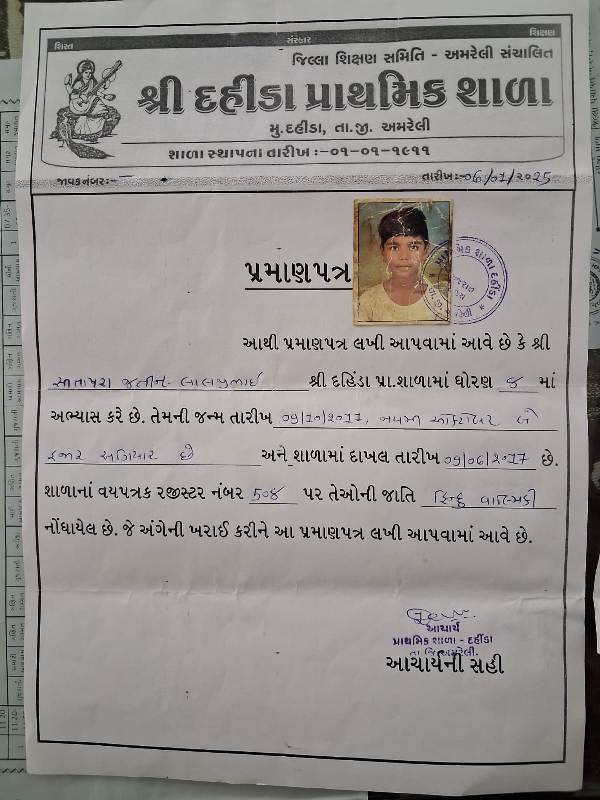 શિસ્ત સંસ્કાર શિક્ષણ
જિલ્લા શિક્ષણ સમિતિ - અમરેલી સંચાલિત
શ્રી દહીંડા પ્રાથમિક શાળા
મુ.દહીંડા, તા.જી. અમરેલી
શાળા સ્થાપના તારીખ :-૦૧-૦૧-૧૯૧૧
જાવકનંબરઃ- તારીખઃ-06/01/2025
પ્રમાણપત્ર
આથી પ્રમાણપત્ર લખી આપવામાં આવે છે કે શ્રી
જતીન લાલજીભાઈ શ્રી દહિંડા પ્રા.શાળામાં ધોરણ ૭ માં
અભ્યાસ કરે છે. તેમની જન્મ તારીખ નવમી ઓક્ટોબર બે
હજાર અગિયાર છે અને શાળામાં દાખલ તારીખ 09/06/2017 છે.
શાળાનાં વયપત્રક રજીસ્ટર નંબર ૬૦૪ પર તેઓની જાતિ હિન્દુ વાલ્મિકી
નોંધાયેલ છે. જે અંગેની ખરાઈ કરીને આ પ્રમાણપત્ર લખી આપવામાં આવે છે.
આચાર્ય
પ્રાથમિક શાળા - દહીંડા
તા.જિ.અમરેલી.
આચાર્યની સહી